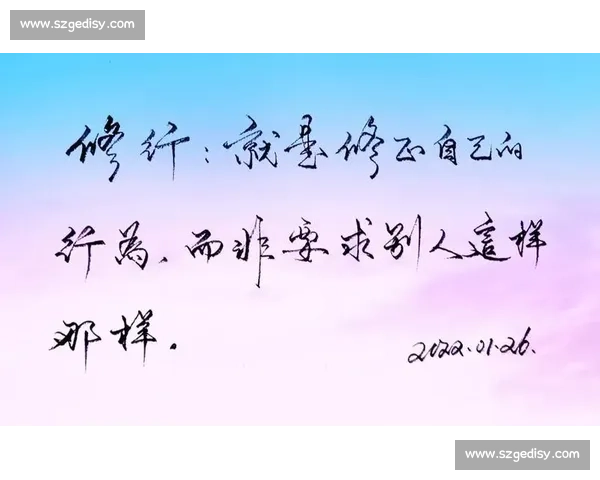 www.szgedisy.com
修行：就是修正自己的
行為、而非要求别人這样
那样.
2022.01.26.
www.szgedisy.com